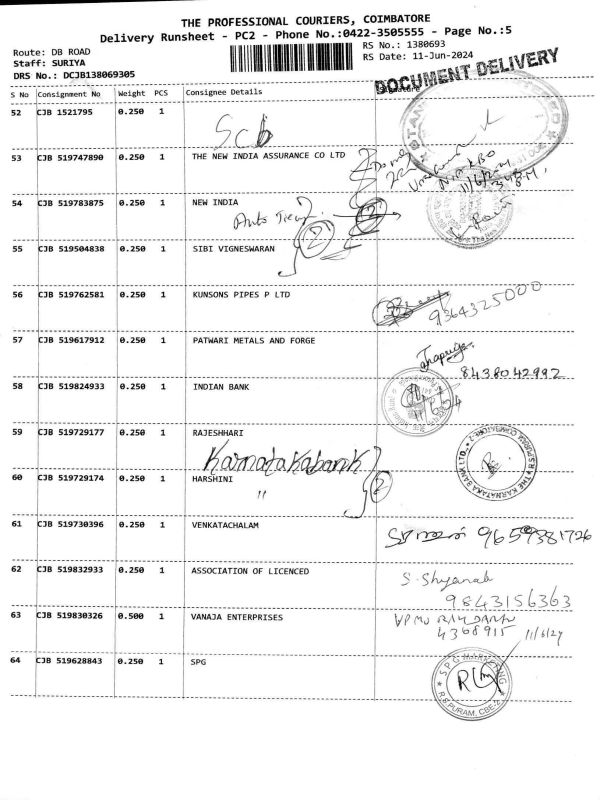 THE PROFESSIONAL COURIERS, COIMBATORE
Delivery Runsheet - PC2 - Phone No.:0422-3505555 - Page No.:5
Route: DB ROAD
Staff: SURIYA
DRS No.: DCJB138069305
RS No.: 1380693
RS Date: 11-Jun-2024
DOCUMENT DELIVERY
S No Consignment No Weight PCS Consignee Details Signature
52 CJB 1521795 0.250 1
Scb
53 CJB 519747890 0.250 1 THE NEW INDIA ASSURANCE CO LTD
11/6/24
54 CJB 519783875 0.250 1 NEW INDIA
2
2
55 CJB 519504838 0.250 1 SIBI VIGNESWARAN
56 CJB 519762581 0.250 1 KUNSONS PIPES P LTD
9364325000
57 CJB 519617912 0.250 1 PATWARI METALS AND FORGE
8438042992
58 CJB 519824933 0.250 1 INDIAN BANK
59 CJB 519729177 0.250 1 RAJESHHARI
Karnataka bank
THE KARNATAKA BANK LTD. R.S.PURAM, COIMBATORE-2
60 CJB 519729174 0.250 1 HARSHINI
"
2
61 CJB 519730396 0.250 1 VENKATACHALAM
9659381726
62 CJB 519832933 0.250 1 ASSOCIATION OF LICENCED
9843156363
63 CJB 519830326 0.500 1 VANAJA ENTERPRISES
4368915
11/6/24
64 CJB 519628843 0.250 1 SPG
SPG MARKETING
R.S PURAM, CBE-2